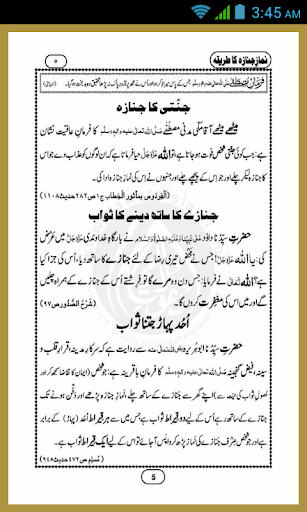 3:45 AM
نمازِ جنازہ کا طریقہ
۵
جنّتی کا جنازہ
میٹھے میٹھے آقا مکّی مَدَنی مصطَفٰے صلَّی اللہ تعالٰی علیہ واٰلہٖ وسلَّم کا فرمانِ عافیت نشان
ہے: جب کوئی جنّتی شخص فوت ہو جاتا ہے تو اللہ عَزَّوَجَلَّ حیا فرماتا ہے کہ ان لوگوں کو عذاب دے جو اس
کا جنازہ لیکر چلے اور جو اِس کے پیچھے چلے اور جنہوں نے اِس کی نمازِ جنازہ ادا کی۔
(اَلْفِردَوس بمأثور الْخِطاب ج۱ ص۲۸۲ حدیث۱۱۰۸)
جنازے کا ساتھ دینے کا ثواب
حضرتِ سیِّدُنا داوٗد علٰی نَبِیِّنا وعلیہ الصلوٰۃ والسلام نے بارگاہِ خداوندی میں عرض
کی: یا اللہ عَزَّوَجَلَّ! جس نے محض تیری رضا کے لئے جنازے کا ساتھ دیا، اُس کی جزا کیا ہے؟
اللہ تعالٰی نے فرمایا: جس دن وہ مرے گا تو فِرِشتے اُس کے جنازے کے ہمراہ چلیں
گے اور میں اس کی مغفِرت کروں گا۔ (شَرْحُ الصُّدور ص۹۷)
اُحُد پہاڑ جتنا ثواب
حضرتِ سیِّدُنا ابوہُریرہ رضی اللہ تعالٰی عنہ سے روایت ہے کہ سرکارِ مدینہ، قرارِ قلب و
سینہ، فیض گنجینہ صلَّی اللہ تعالٰی علیہ واٰلہٖ وسلَّم کا فرمانِ باقرینہ ہے: جو شخص (ایمان کا تقاضا سمجھ کر اور
حُصولِ ثواب کی نیّت سے) اپنے گھر سے جنازے کے ساتھ چلے، نَمازِ جنازہ پڑھے اور دَفْن ہونے تک
جنازے کے ساتھ رہے اُس کے لیے دو قیراط ثواب ہے جس میں سے ہر قیراط اُحُد (پہاڑ) کے برابر
ہے اور جو شخص صرف جنازے کی نَماز پڑھ کر واپَس آ جائے تو اس کے لیے ایک قیراط ثواب ہے۔
(مُسلِم ص۴۷۲ حدیث۹۴۵)
5